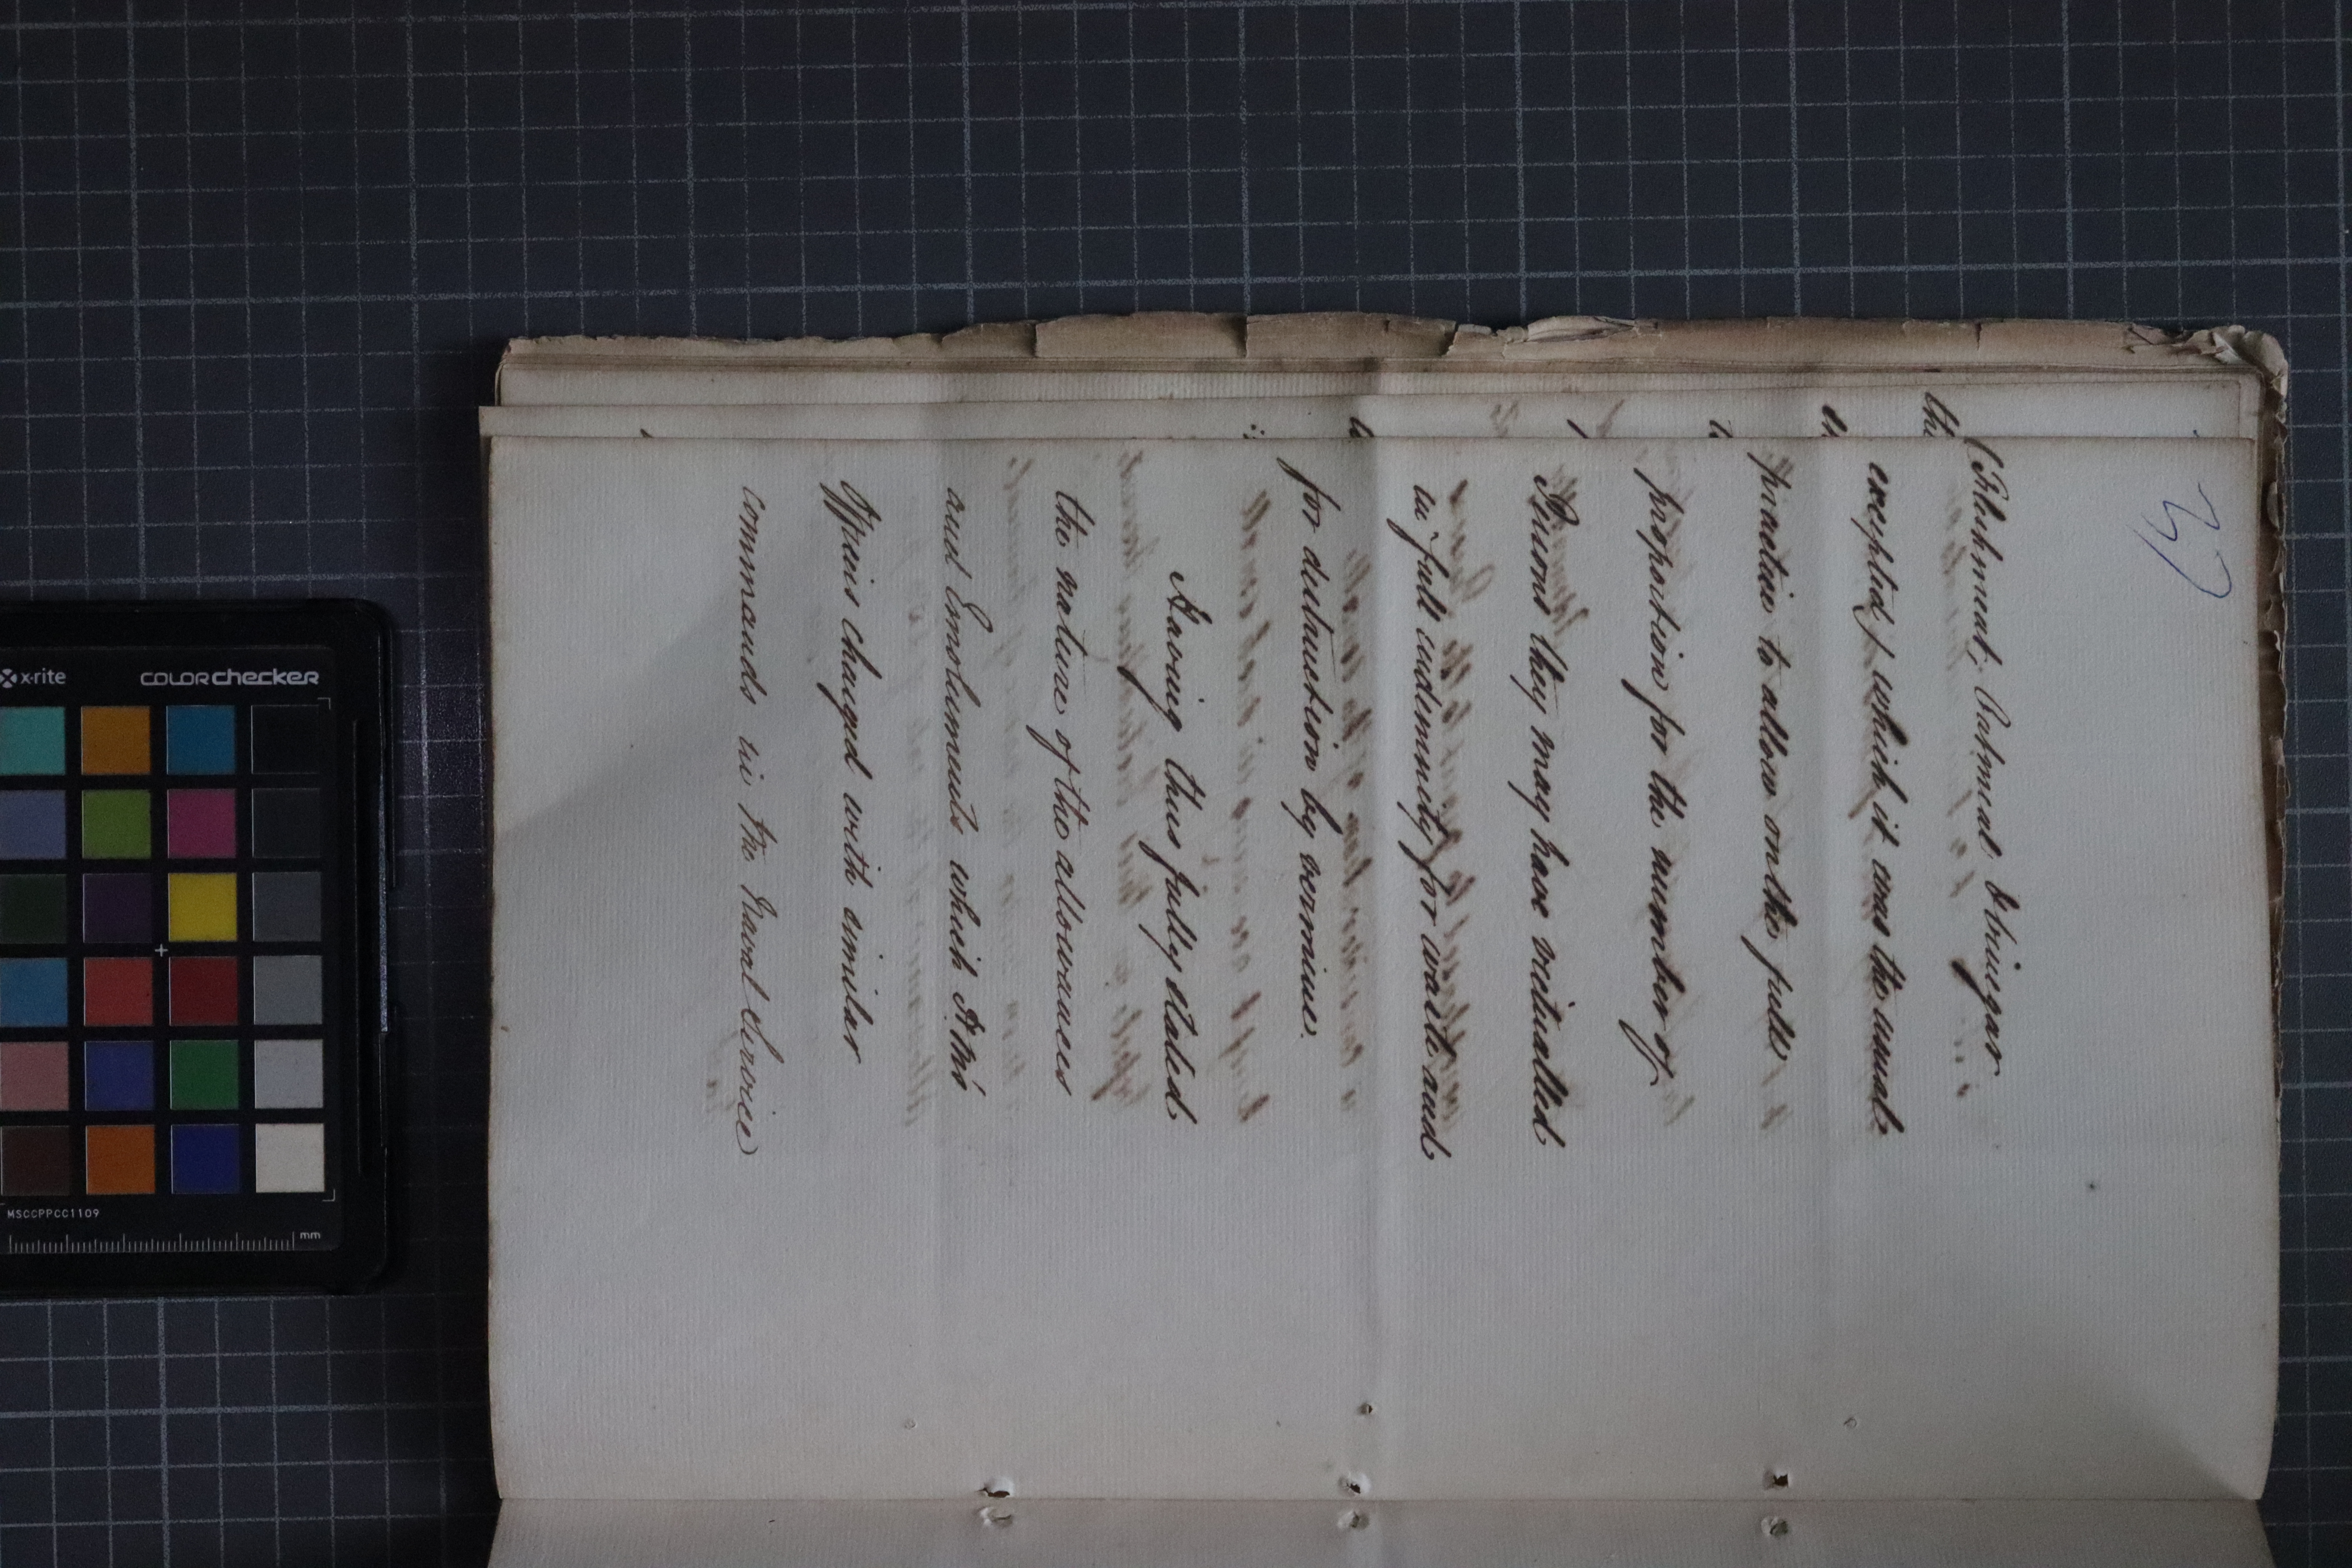 37
(Flesh meat, Oatmeal & Vinegar
excepted) which it was the usual
practice to allow on the full
proportion for the number of
Persons they may have victualled
in full indemnity for waste and
for destruction by vermine.
Having thus fully stated
the nature of the allowances
and Emoluments which
Officers charged with similar
commands in the Naval Service
x-rite
colorchecker
MSCCPPCC1109
mm